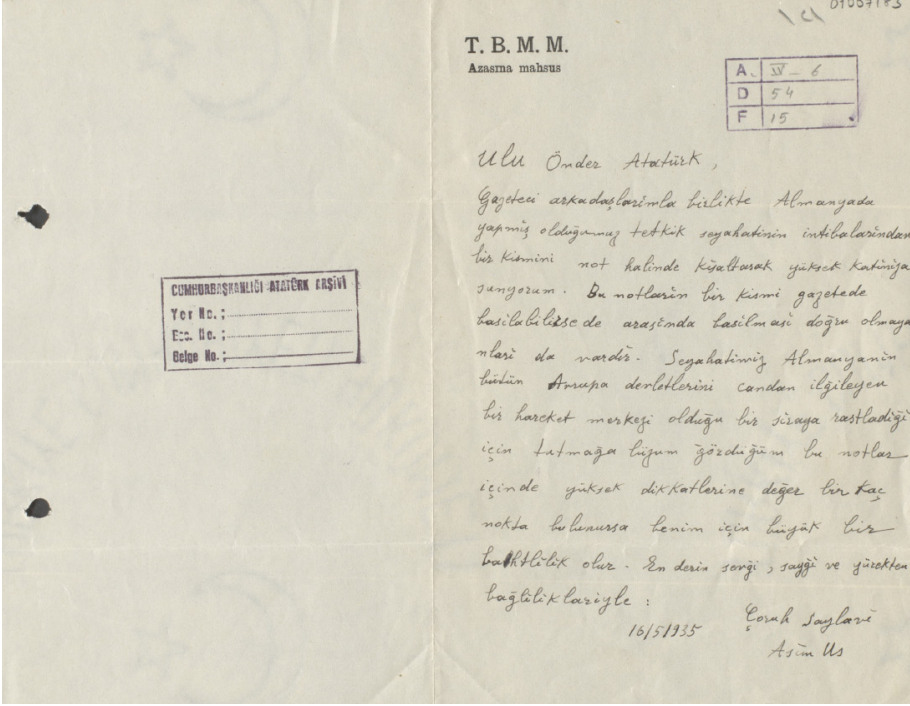 01007183
T. B. M. M.
Azasına mahsus
A. IV - 6
D 54
F 15
Ulu Önder Atatürk,
Gazeteci arkadaşlarımla birlikte Almanyada
yapmış olduğumuz tetkik seyahatinin intibalarından
bir kısmını not halinde kısaltarak yüksek katınıza
sunyorum. Bu notların bir kısmı gazetede
basılabilirse de arasında basılması doğru olmaya
nları da vardır. Seyahatimiz Almanyanın
bütün Avrupa devletlerini candan ilgileyen
bir hareket merkezi olduğu bir sıraya rastladığı
için tutmağa lüzum gördüğüm bu notlar
içinde yüksek dikkatlerine değer bir kaç
nokta bulunursa benim için büyük bir
bahtlilik olur. En derin sevgi, saygı ve yürekten
bağlılıklariyle :
16/5/1935
Çoruh saylavı
Asım Us
CUMHURBAŞKANLIĞI ATATÜRK ARŞİVİ
Yer No. :
Esc. No. :
Belge No. :